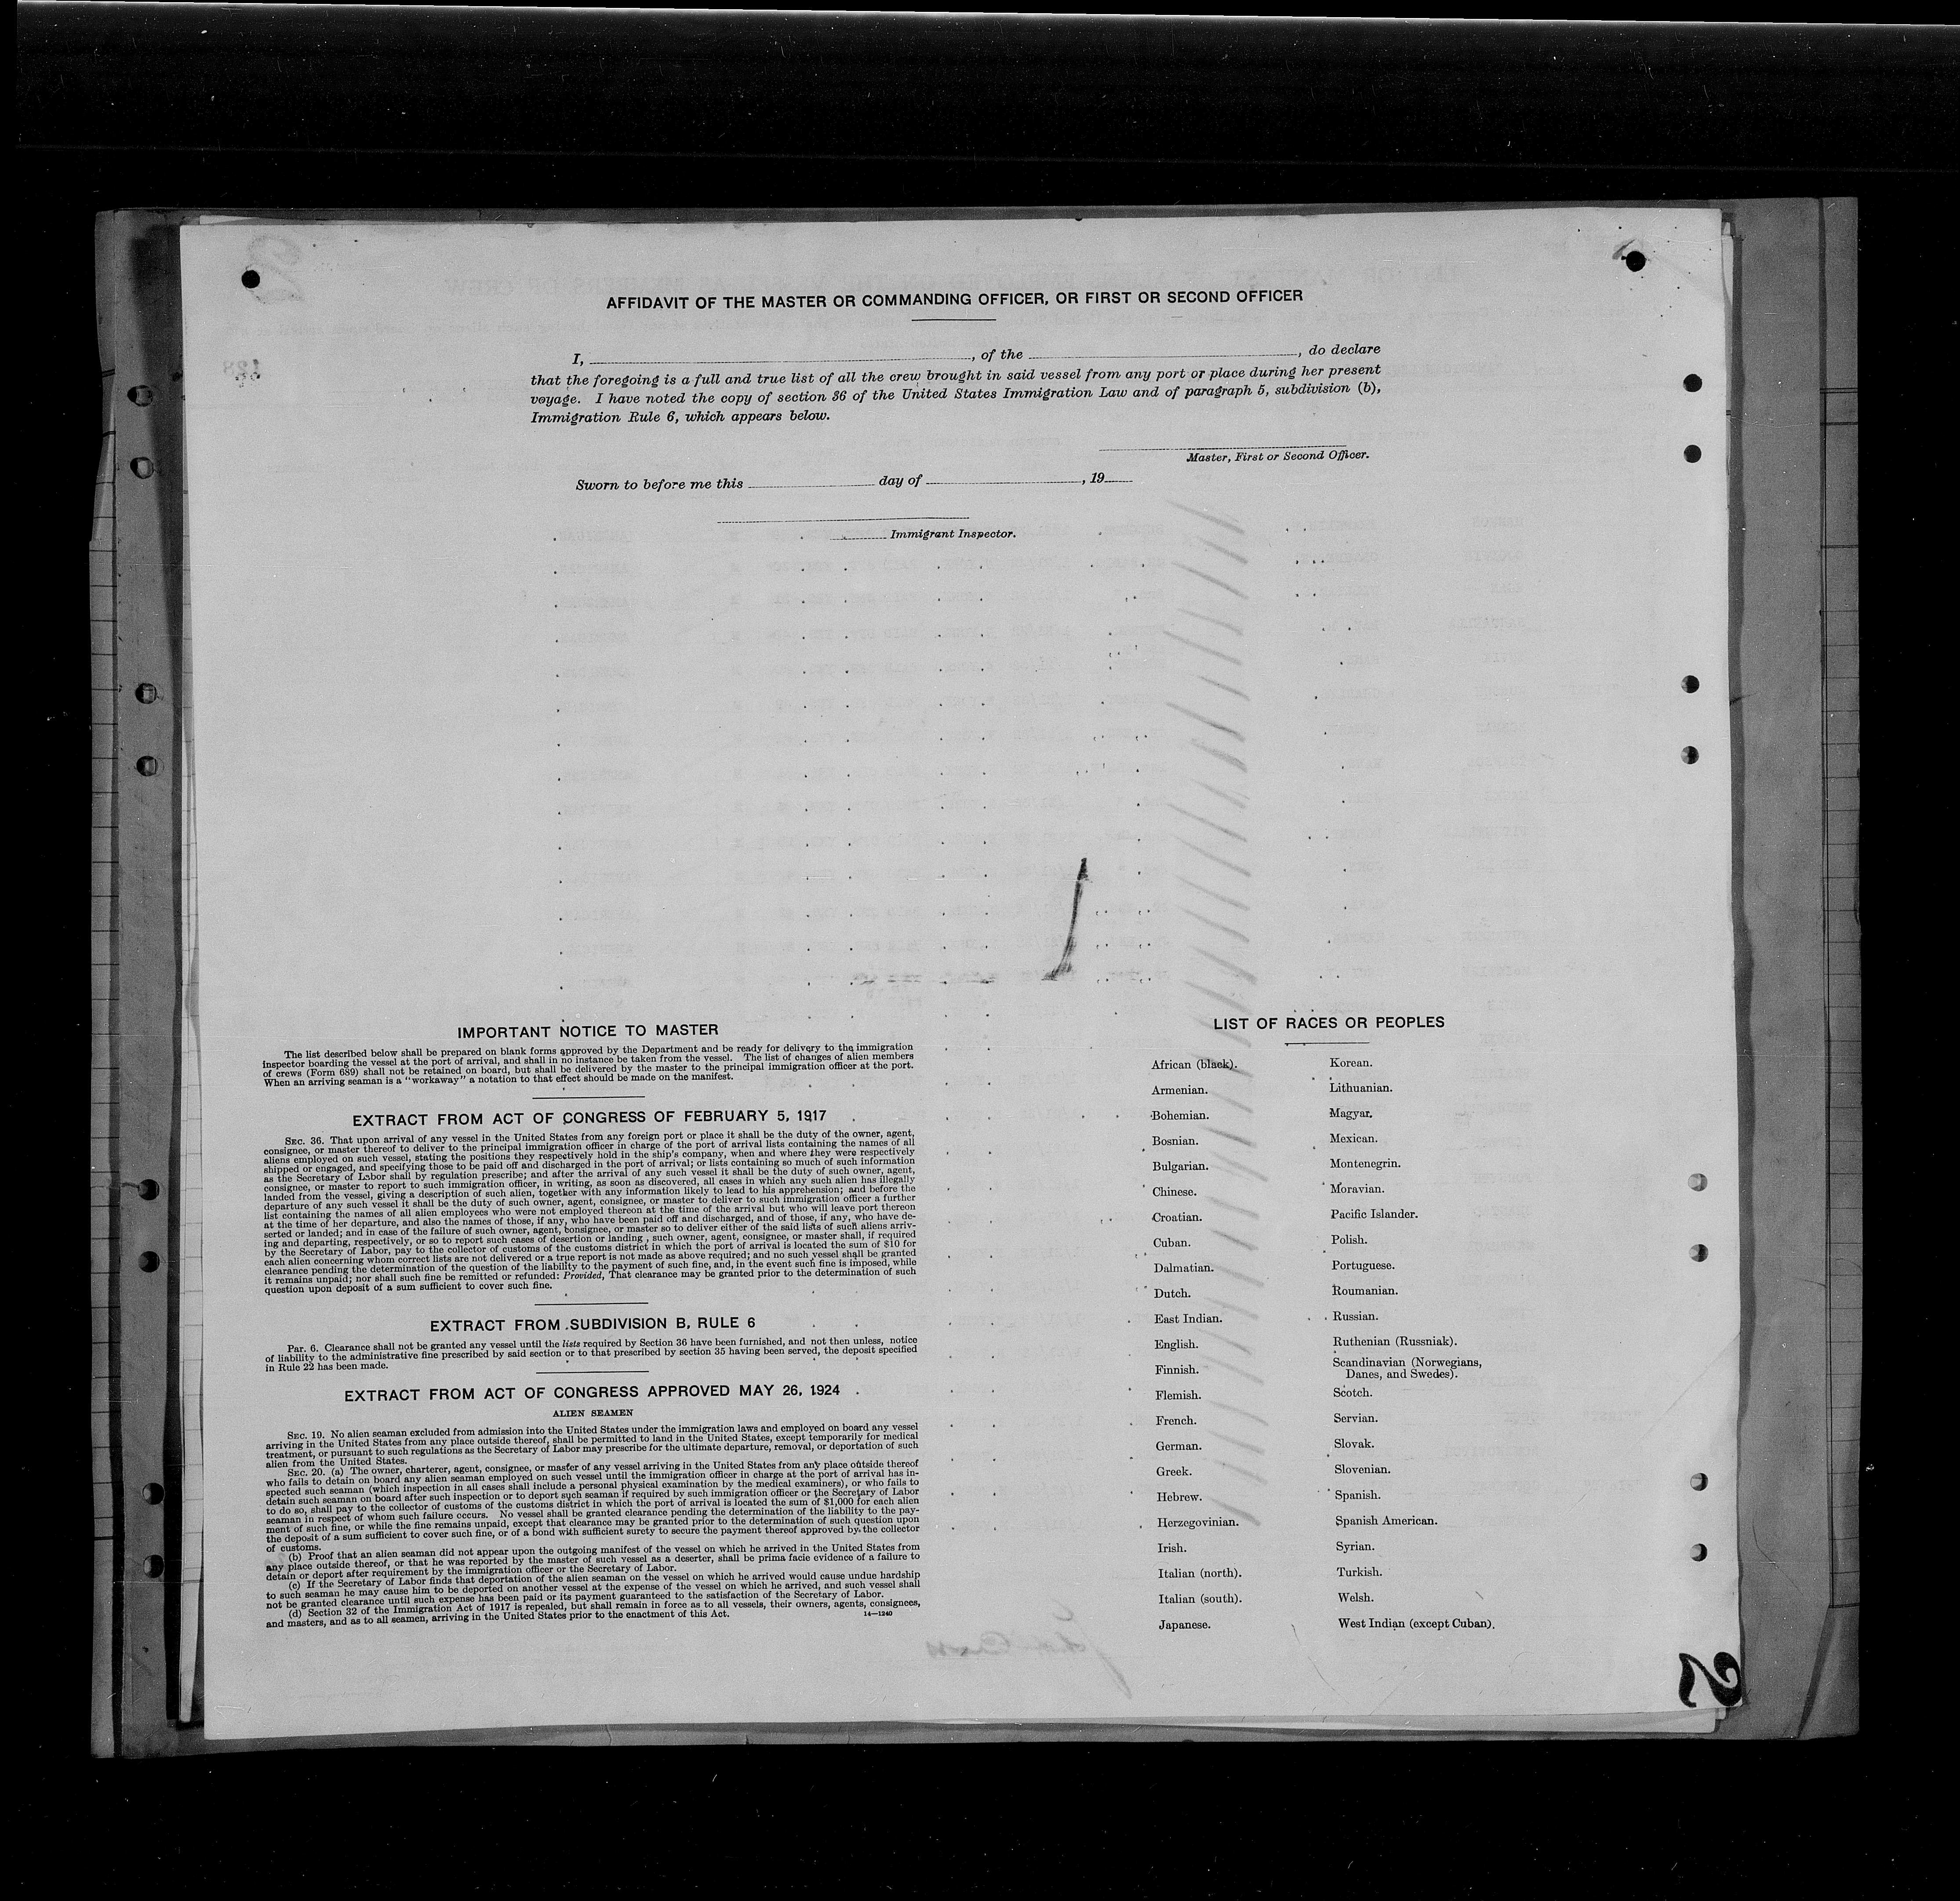 AFFIDAVIT OF THE MASTER OR COMMANDING OFFICER, OR FIRST OR SECOND OFFICER
I, , of the , do declare
that the foregoing is a full and true list of all the crew brought in said vessel from any port or place during her present
voyage. I have noted the copy of section 36 of the United States Immigration Law and of paragraph 5, subdivision (b),
Immigration Rule 6, which appears below.
Master, First or Second Officer.
Sworn to before me this day of , 19
Immigrant Inspector.
IMPORTANT NOTICE TO MASTER
The list described below shall be prepared on blank forms approved by the Department and be ready for delivery to the immigration
inspector boarding the vessel at the port of arrival, and shall in no instance be taken from the vessel. The list of changes of alien members
of crews (Form 689) shall not be retained on board, but shall be delivered by the master to the principal immigration officer at the port.
When an arriving seaman is a "workaway" a notation to that effect should be made on the manifest.
EXTRACT FROM ACT OF CONGRESS OF FEBRUARY 5, 1917
SEC. 36. That upon arrival of any vessel in the United States from any foreign port or place it shall be the duty of the owner, agent,
consignee, or master thereof to deliver to the principal immigration officer in charge of the port of arrival lists containing the names of all
aliens employed on such vessel, stating the positions they respectively hold in the ship's company, when and where they were respectively
shipped or engaged, and specifying those to be paid off and discharged in the port of arrival; or lists containing so much of such information
as the Secretary of Labor shall by regulation prescribe; and after the arrival of any such vessel it shall be the duty of such owner, agent,
consignee, or master to report to such immigration officer, in writing, as soon as discovered, all cases in which any such alien has illegally
landed from the vessel, giving a description of such alien, together with any information likely to lead to his apprehension; and before the
departure of any such vessel it shall be the duty of such owner, agent, consignee, or master to deliver to such immigration officer a further
list containing the names of all alien employees who were not employed thereon at the time of the arrival but who will leave port thereon
at the time of her departure, and also the names of those, if any, who have been paid off and discharged, and of those, if any, who have de-
serted or landed; and in case of the failure of such owner, agent, consignee, or master so to deliver either of the said lists of such aliens arriv-
ing and departing, respectively, or so to report such cases of desertion or landing , such owner, agent, consignee, or master shall, if required
by the Secretary of Labor, pay to the collector of customs of the customs district in which the port of arrival is located the sum of $10 for
each alien concerning whom correct lists are not delivered or a true report is not made as above required; and no such vessel shall be granted
clearance pending the determination of the question of the liability to the payment of such fine, and, in the event such fine is imposed, while
it remains unpaid; nor shall such fine be remitted or refunded: Provided, That clearance may be granted prior to the determination of such
question upon deposit of a sum sufficient to cover such fine.
EXTRACT FROM SUBDIVISION B, RULE 6
Par. 6. Clearance shall not be granted any vessel until the lists required by Section 36 have been furnished, and not then unless, notice
of liability to the administrative fine prescribed by said section or to that prescribed by section 35 having been served, the deposit specified
in Rule 22 has been made.
EXTRACT FROM ACT OF CONGRESS APPROVED MAY 26, 1924
ALIEN SEAMEN
SEC. 19. No alien seaman excluded from admission into the United States under the immigration laws and employed on board any vessel
arriving in the United States from any place outside thereof, shall be permitted to land in the United States, except temporarily for medical
treatment, or pursuant to such regulations as the Secretary of Labor may prescribe for the ultimate departure, removal, or deportation of such
alien from the United States.
SEC. 20. (a) The owner, charterer, agent, consignee, or master of any vessel arriving in the United States from any place outside thereof
who fails to detain on board any alien seaman employed on such vessel until the immigration officer in charge at the port of arrival has in-
spected such seaman (which inspection in all cases shall include a personal physical examination by the medical examiners), or who fails to
detain such seaman on board after such inspection or to deport such seaman if required by such immigration officer or the Secretary of Labor
to do so, shall pay to the collector of customs of the customs district in which the port of arrival is located the sum of $1,000 for each alien
seaman in respect of whom such failure occurs. No vessel shall be granted clearance pending the determination of the liability to the pay-
ment of such fine, or while the fine remains unpaid, except that clearance may be granted prior to the determination of such question upon
the deposit of a sum sufficient to cover such fine, or of a bond with sufficient surety to secure the payment thereof approved by the collector
of customs.
(b) Proof that an alien seaman did not appear upon the outgoing manifest of the vessel on which he arrived in the United States from
any place outside thereof, or that he was reported by the master of such vessel as a deserter, shall be prima facie evidence of a failure to
detain or deport after requirement by the immigration officer or the Secretary of Labor.
(c) If the Secretary of Labor finds that deportation of the alien seaman on the vessel on which he arrived would cause undue hardship
to such seaman he may cause him to be deported on another vessel at the expense of the vessel on which he arrived, and such vessel shall
not be granted clearance until such expense has been paid or its payment guaranteed to the satisfaction of the Secretary of Labor.
(d) Section 32 of the Immigration Act of 1917 is repealed, but shall remain in force as to all vessels, their owners, agents, consignees,
and masters, and as to all seamen, arriving in the United States prior to the enactment of this Act.
14—1240
LIST OF RACES OR PEOPLES
African (black).
Armenian.
Bohemian.
Bosnian.
Bulgarian.
Chinese.
Croatian.
Cuban.
Dalmatian.
Dutch.
East Indian.
English.
Finnish.
Flemish.
French.
German.
Greek.
Hebrew.
Herzegovinian.
Irish.
Italian (north).
Italian (south).
Japanese.
Korean.
Lithuanian.
Magyar.
Mexican.
Montenegrin.
Moravian.
Pacific Islander.
Polish.
Portuguese.
Roumanian.
Russian.
Ruthenian (Russniak).
Scandinavian (Norwegians,
Danes, and Swedes).
Scotch.
Servian.
Slovak.
Slovenian.
Spanish.
Spanish American.
Syrian.
Turkish.
Welsh.
West Indian (except Cuban).
2